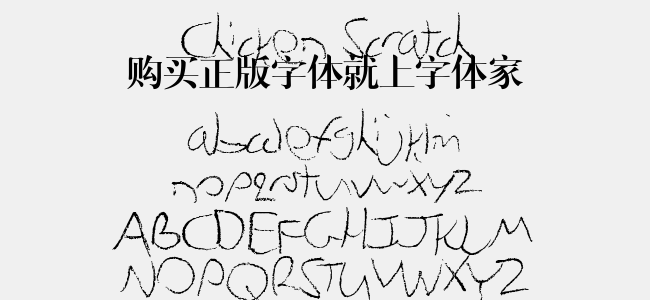 Chicken Scratch
购买正版字体就上字体家
abcdefghijklm
nopqrstuvwxyz
ABCDEFGHIJKLM
NOPQRSTUVWXYZ